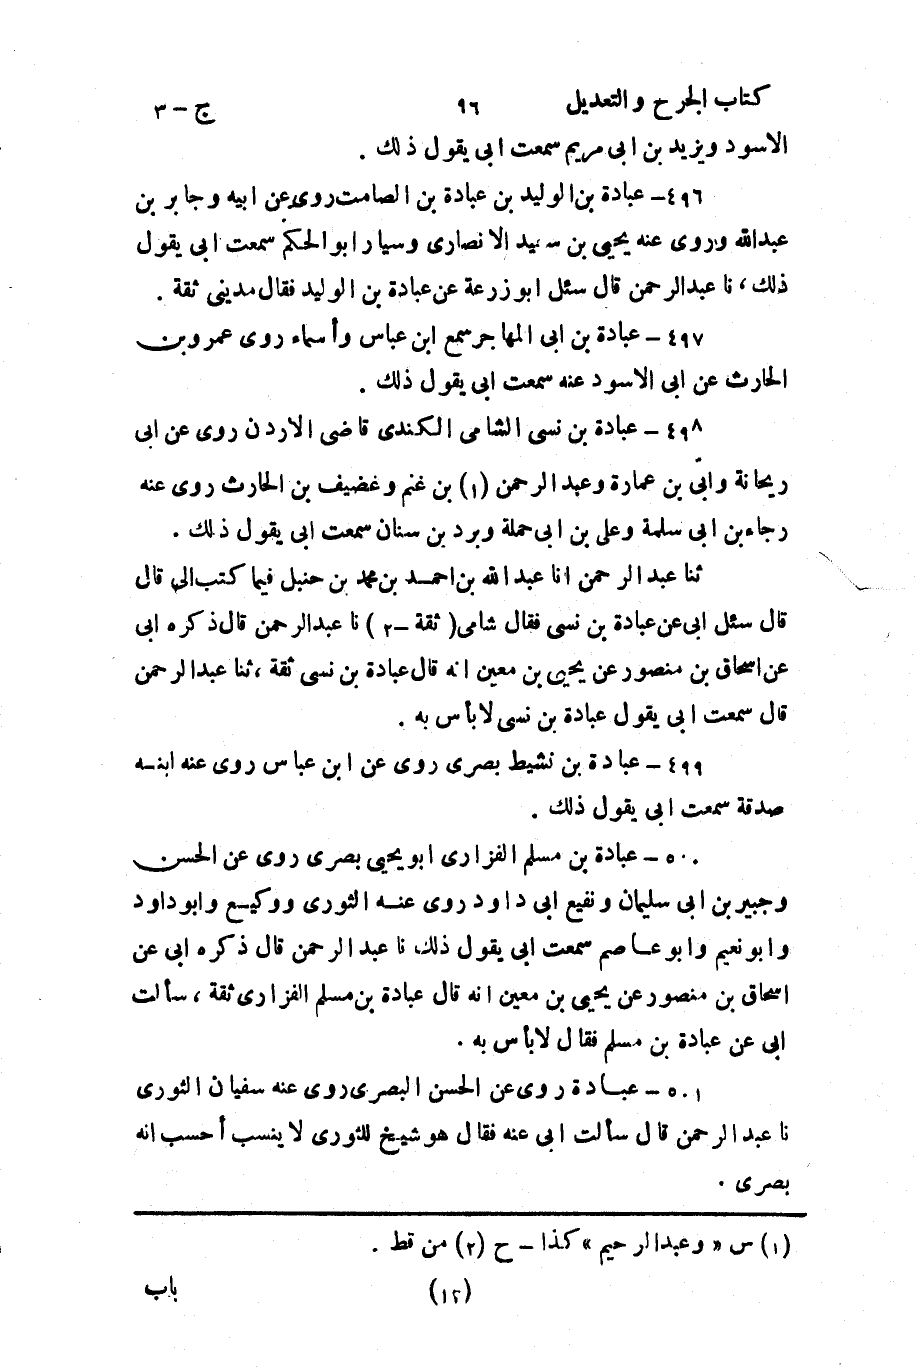 كتاب الجرح والتعديل ٩٦ ج – ٣
الاسود ويزيد بن ابى مريم سمعت ابى يقول ذلك .
٤٩٦ – عبادة بن الوليد بن عبادة بن الصامت روى عن ابيه وجابر بن
عبدالله وروى عنه يحيى بن سعيد الانصارى وسيار ابوالحكم سمعت ابى يقول
ذلك، نا عبدالرحمن قال سئل ابوزرعة عن عبادة بن الوليد فقال مدينى ثقة .
٤٩٧ – عبادة بن ابى المهاجر سمع ابن عباس وأسماء روى عمرو بن
الحارث عن ابى الاسود عنه سمعت ابى يقول ذلك .
٤٩٨ – عبادة بن نسى الشامى الكندى قاضى الاردن روى عن ابى
ريحانة وأبى بن عمارة وعبدالرحمن (١) بن غنم وغضيف بن الحارث روى عنه
رجاء بن ابى سلمة وعلى بن ابى حملة وبرد بن سنان سمعت ابى يقول ذلك .
ثنا عبدالرحمن انا عبدالله بن احمد بن محمد بن حنبل فيما كتب الى قال
قال سئل ابى عن عبادة بن نسى فقال شامى ( ثقة – ٢ ) نا عبدالرحمن قال ذكره ابى
عن اسحاق بن منصور عن يحيى بن معين انه قال عبادة بن نسى ثقة ، ثنا عبدالرحمن
قال سمعت ابى يقول عبادة بن نسى لابأس به .
٤٩٩ – عبادة بن نشيط بصرى روى عن ابن عباس روى عنه ابنه
صدقة سمعت ابى يقول ذلك .
٥٠٠ – عبادة بن مسلم الفزارى ابويحيى بصرى روى عن الحسن
وجبير بن ابى سليمان ونفيع ابى داود روى عنه الثورى ووكيع وابوداود
وابونعيم وابوعاصم سمعت ابى يقول ذلك، نا عبدالرحمن قال ذكره ابى عن
اسحاق بن منصور عن يحيى بن معين انه قال عبادة بن مسلم الفزارى ثقة ، سألت
ابى عن عبادة بن مسلم فقال لابأس به .
٥٠١ – عبادة روى عن الحسن البصرى روى عنه سفيان الثورى
نا عبدالرحمن قال سألت ابى عنه فقال هو شيخ للثورى لا ينسب أحسب انه
بصرى .
(١) س « وعبدالرحيم » كذا – ح (٢) من قط .
(١٢) باب